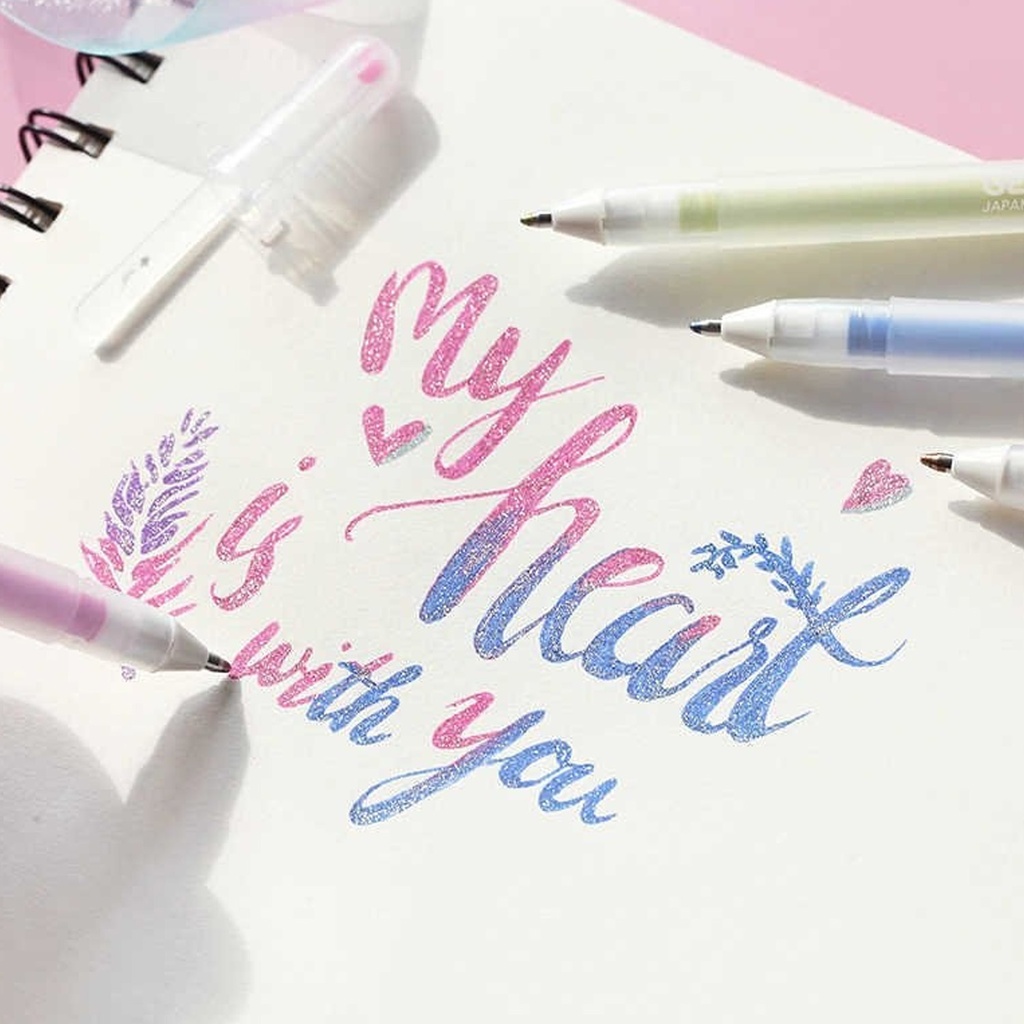 My
heart
is
with
you
JAPAN